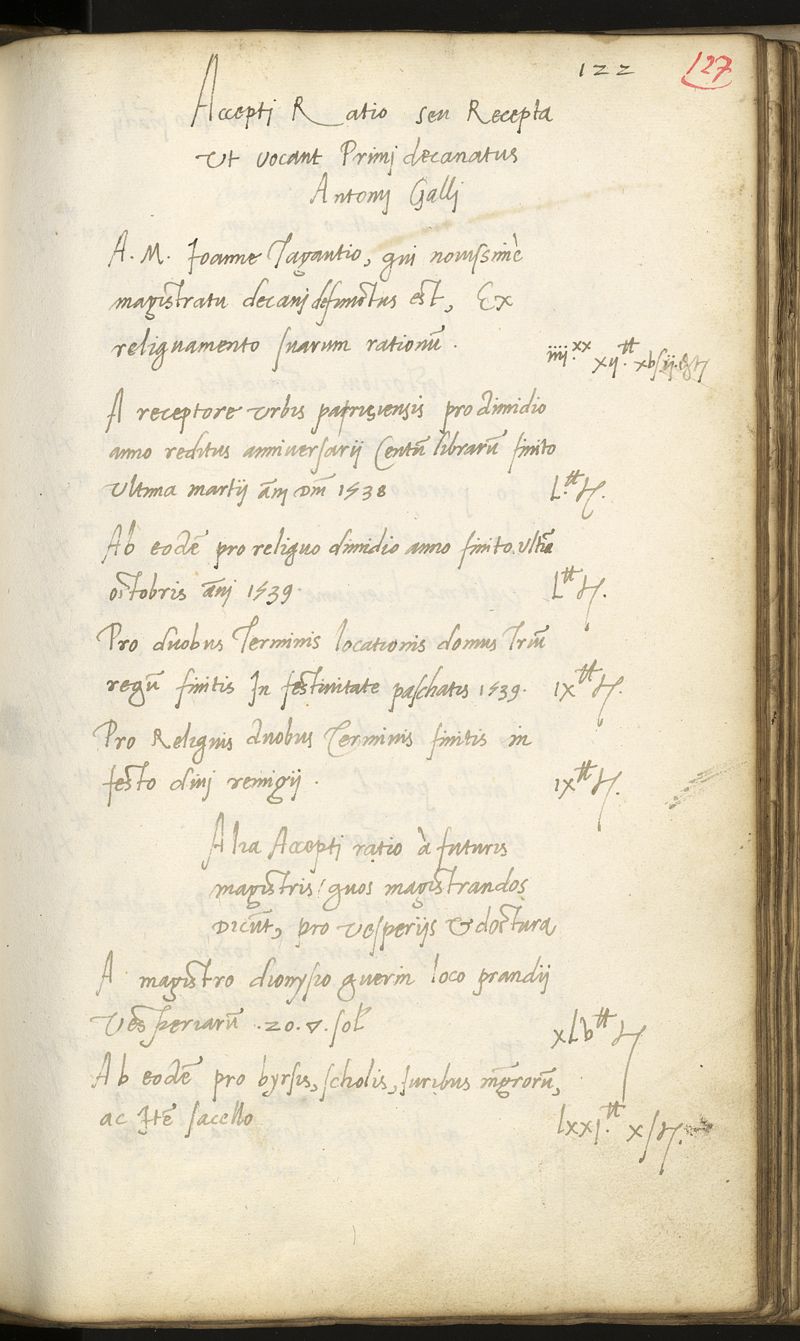 122 127
Accepti Ratio seu Recepta
Ut vocant Primi decanatus
Antonij Galli
A. M. Joanne Tagautio, qui novissimè
magistratu decanj defunctus est, Ex
reliquamento suarum rationū.
iiij.xx xij.tt xvs iij. d t
A receptore Urbis parrisiensis pro dimidio
anno reditus anniversarij Centū librarū finito
Ultima martij āni Dni 1538
L.tt t.
Ab eodē pro reliquo dimidio anno finito ultīa
octobris āni 1539
Ltt t.
Pro duobus Terminis locationis domus triū
regū finitis In festivitate paschatis 1539.
ixtt t.
Pro Reliquis duobus Terminis finitis in
festo divi remigij.
ixtt t.
Alia Accepti ratio à futuris
magistris (quos magistrandos
Dicūt, pro vesperijs & doctura
A magistro dionysio guerin loco prandij
Vesperiarū .20. ▽. sol
xLvtt t
Ab eodē pro byrsis, scholis, juribus mgrorū,
ac Itē sacello
lxxj.tt xs t.